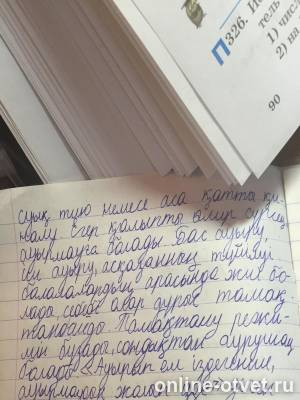 326. И
тель
1) чис
2) на
90
суық тию немесе аса қатты қи-
налу Егер қалыпты өмір сүрсең
ауырмауға болады. Бас ауыру,
іш ауыру, асқазанның түйілуі
балалардың арасында жиі бо-
лады, себебі олар дұрыс тамақ
танбайды. Тамақтану режи-
мін бұзады, сондықтан
болады «Ауырып ем іздегенше,
ауырмаудың жолын
online-otvet.ru